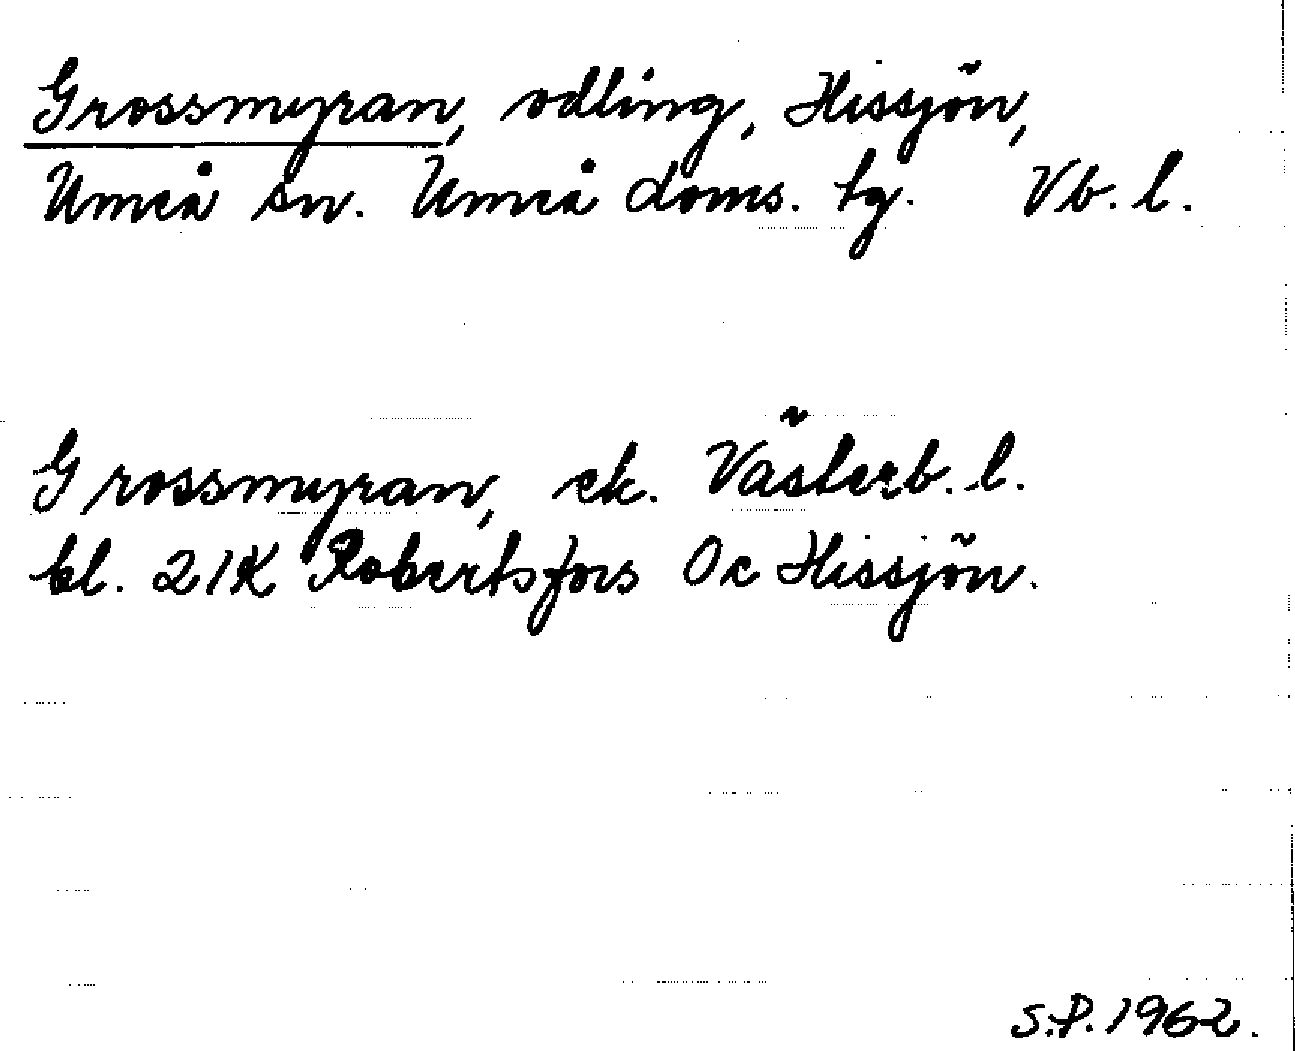 Grossmyran, odling, Hissjön,
Umeå sn. Umeå doms. tg. Vb. l.
Grossmyran, ek. Västerb. l.
bl. 21K Robertsfors Oc Hissjön.
S.P. 1962.